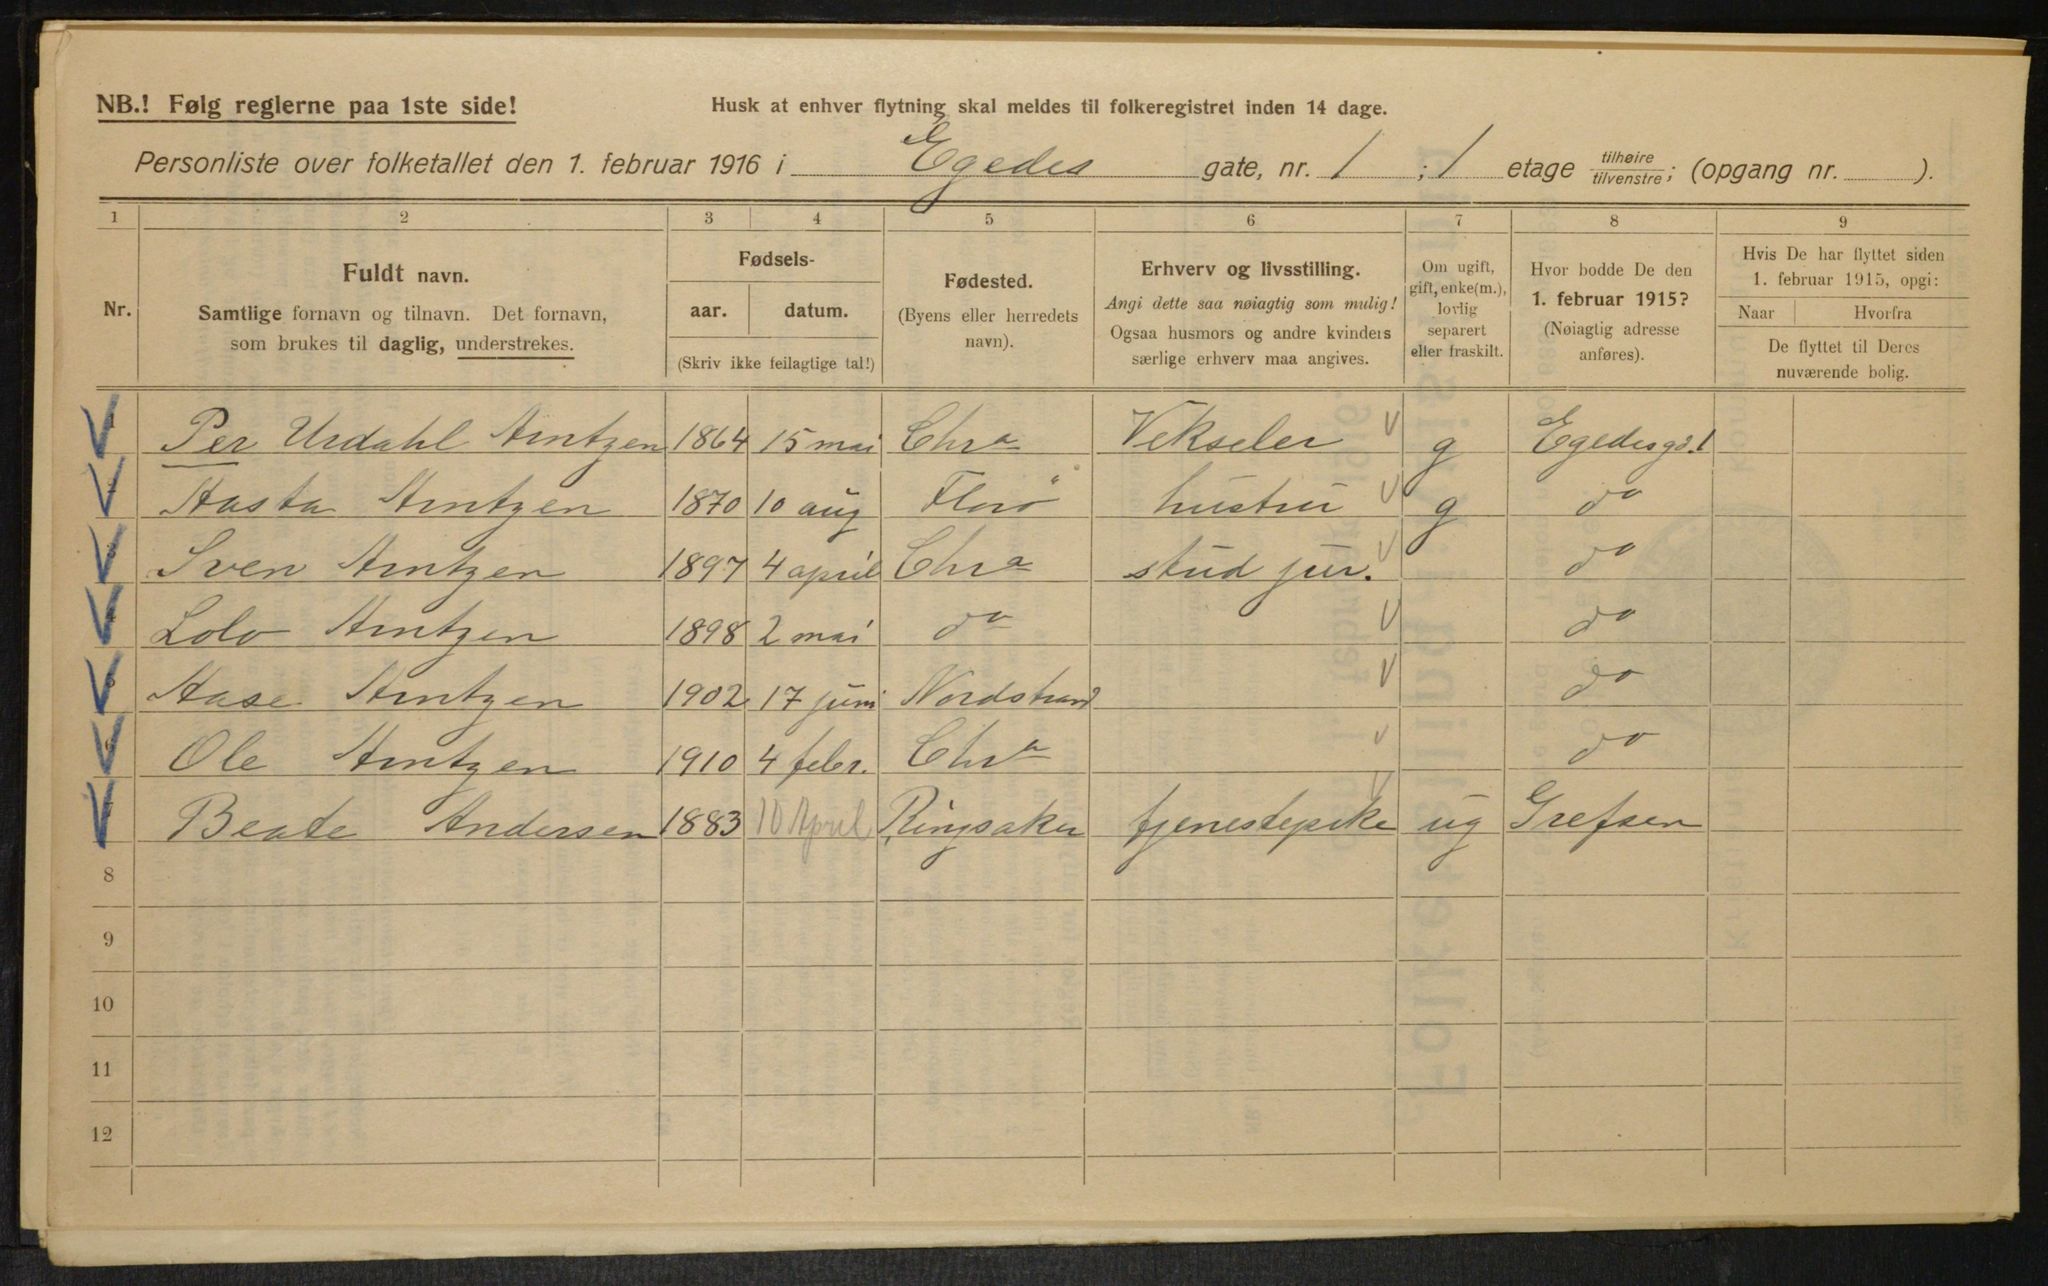 NB.! Følg reglerne paa 1ste side!
Husk at enhver flytning skal meldes til folkeregistret inden 14 dage.
Personliste over folketallet den 1. februar 1916 i Egedes gate, nr. 1 ; 1 etage tilhøire/tilvenstre; (opgang nr. ).
1 2 3 4 5 6 7 8 9
Nr.
Fuldt navn.
Samtlige fornavn og tilnavn. Det fornavn,
som brukes til daglig, understrekes.
Fødsels-
aar. datum.
(Skriv ikke feilagtige tal!)
Fødested.
(Byens eller herredets
navn).
Erhverv og livsstilling.
Angi dette saa nøiagtig som mulig!
Ogsaa husmors og andre kvinders
særlige erhverv maa angives.
Om ugift,
gift, enke(m.),
lovlig
separert
eller fraskilt.
Hvor bodde De den
1. februar 1915?
(Nøiagtig adresse
anføres).
Hvis De har flyttet siden
1. februar 1915, opgi:
Naar Hvorfra
De flyttet til Deres
nuværende bolig.
1 Per Urdahl Arntzen 1864 15 mai Chra Vekseler g Egedesgd. 1
2 Aasta Arntzen 1870 10 aug Florö hustru g do
3 Sven Arntzen 1897 4 april Chra stud jur. do
4 Lolo Arntzen 1898 2 mai do do
5 Aase Arntzen 1902 17 juni Nordstrand do
6 Ole Arntzen 1910 4 febr. Chra do
7 Beate Andersen 1883 10 April Ringsaker tjenestepike ug Grefsen
8
9
10
11
12